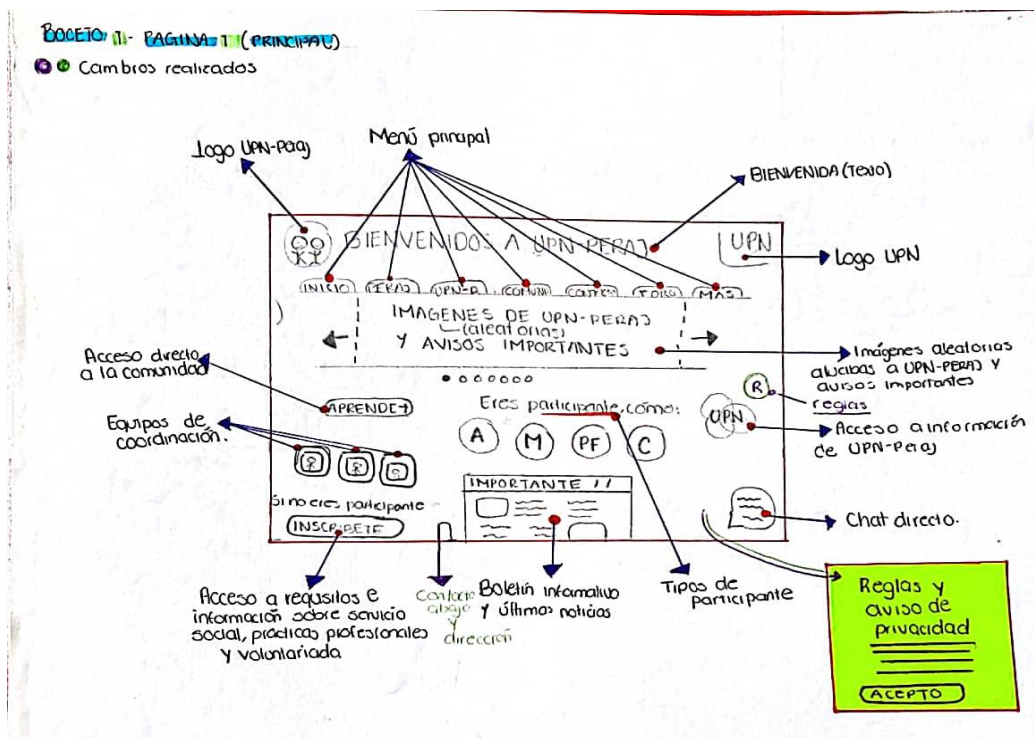 BOCETO: 1- PAGINA 1 (PRINCIPAL)
Cambios realizados
Logo UPN-Peraj
Menú principal
BIENVENIDA (TEXTO)
BIENVENIDOS A UPN-PERAJ
UPN
Logo UPN
INICIO PERAJ UPN-P. COMUNI FORO MAS
IMAGENES DE UPN-PERAJ
(aleatorias)
Y AVISOS IMPORTANTES
Imágenes aleatorias
alucibas a UPN-PERAJ y
avisos importantes
R
reglas
Acceso directo
a la comunidad
APRENDE+
Eres participante, como:
A M PF C
UPN
Acceso a información
de UPN-Peraj
Equipos de
coordinación.
IMPORTANTE !!
Si no eres participante
INSCRIBETE
Chat directo.
Acceso a requsitos e
información sobre servicio
social, prácticas profesionales
y voluntariada
Contacto
abajo
y
dirección
Boletín informativo
y últimas noticias
Tipos de
participante
Reglas y
aviso de
privacidad
ACEPTO